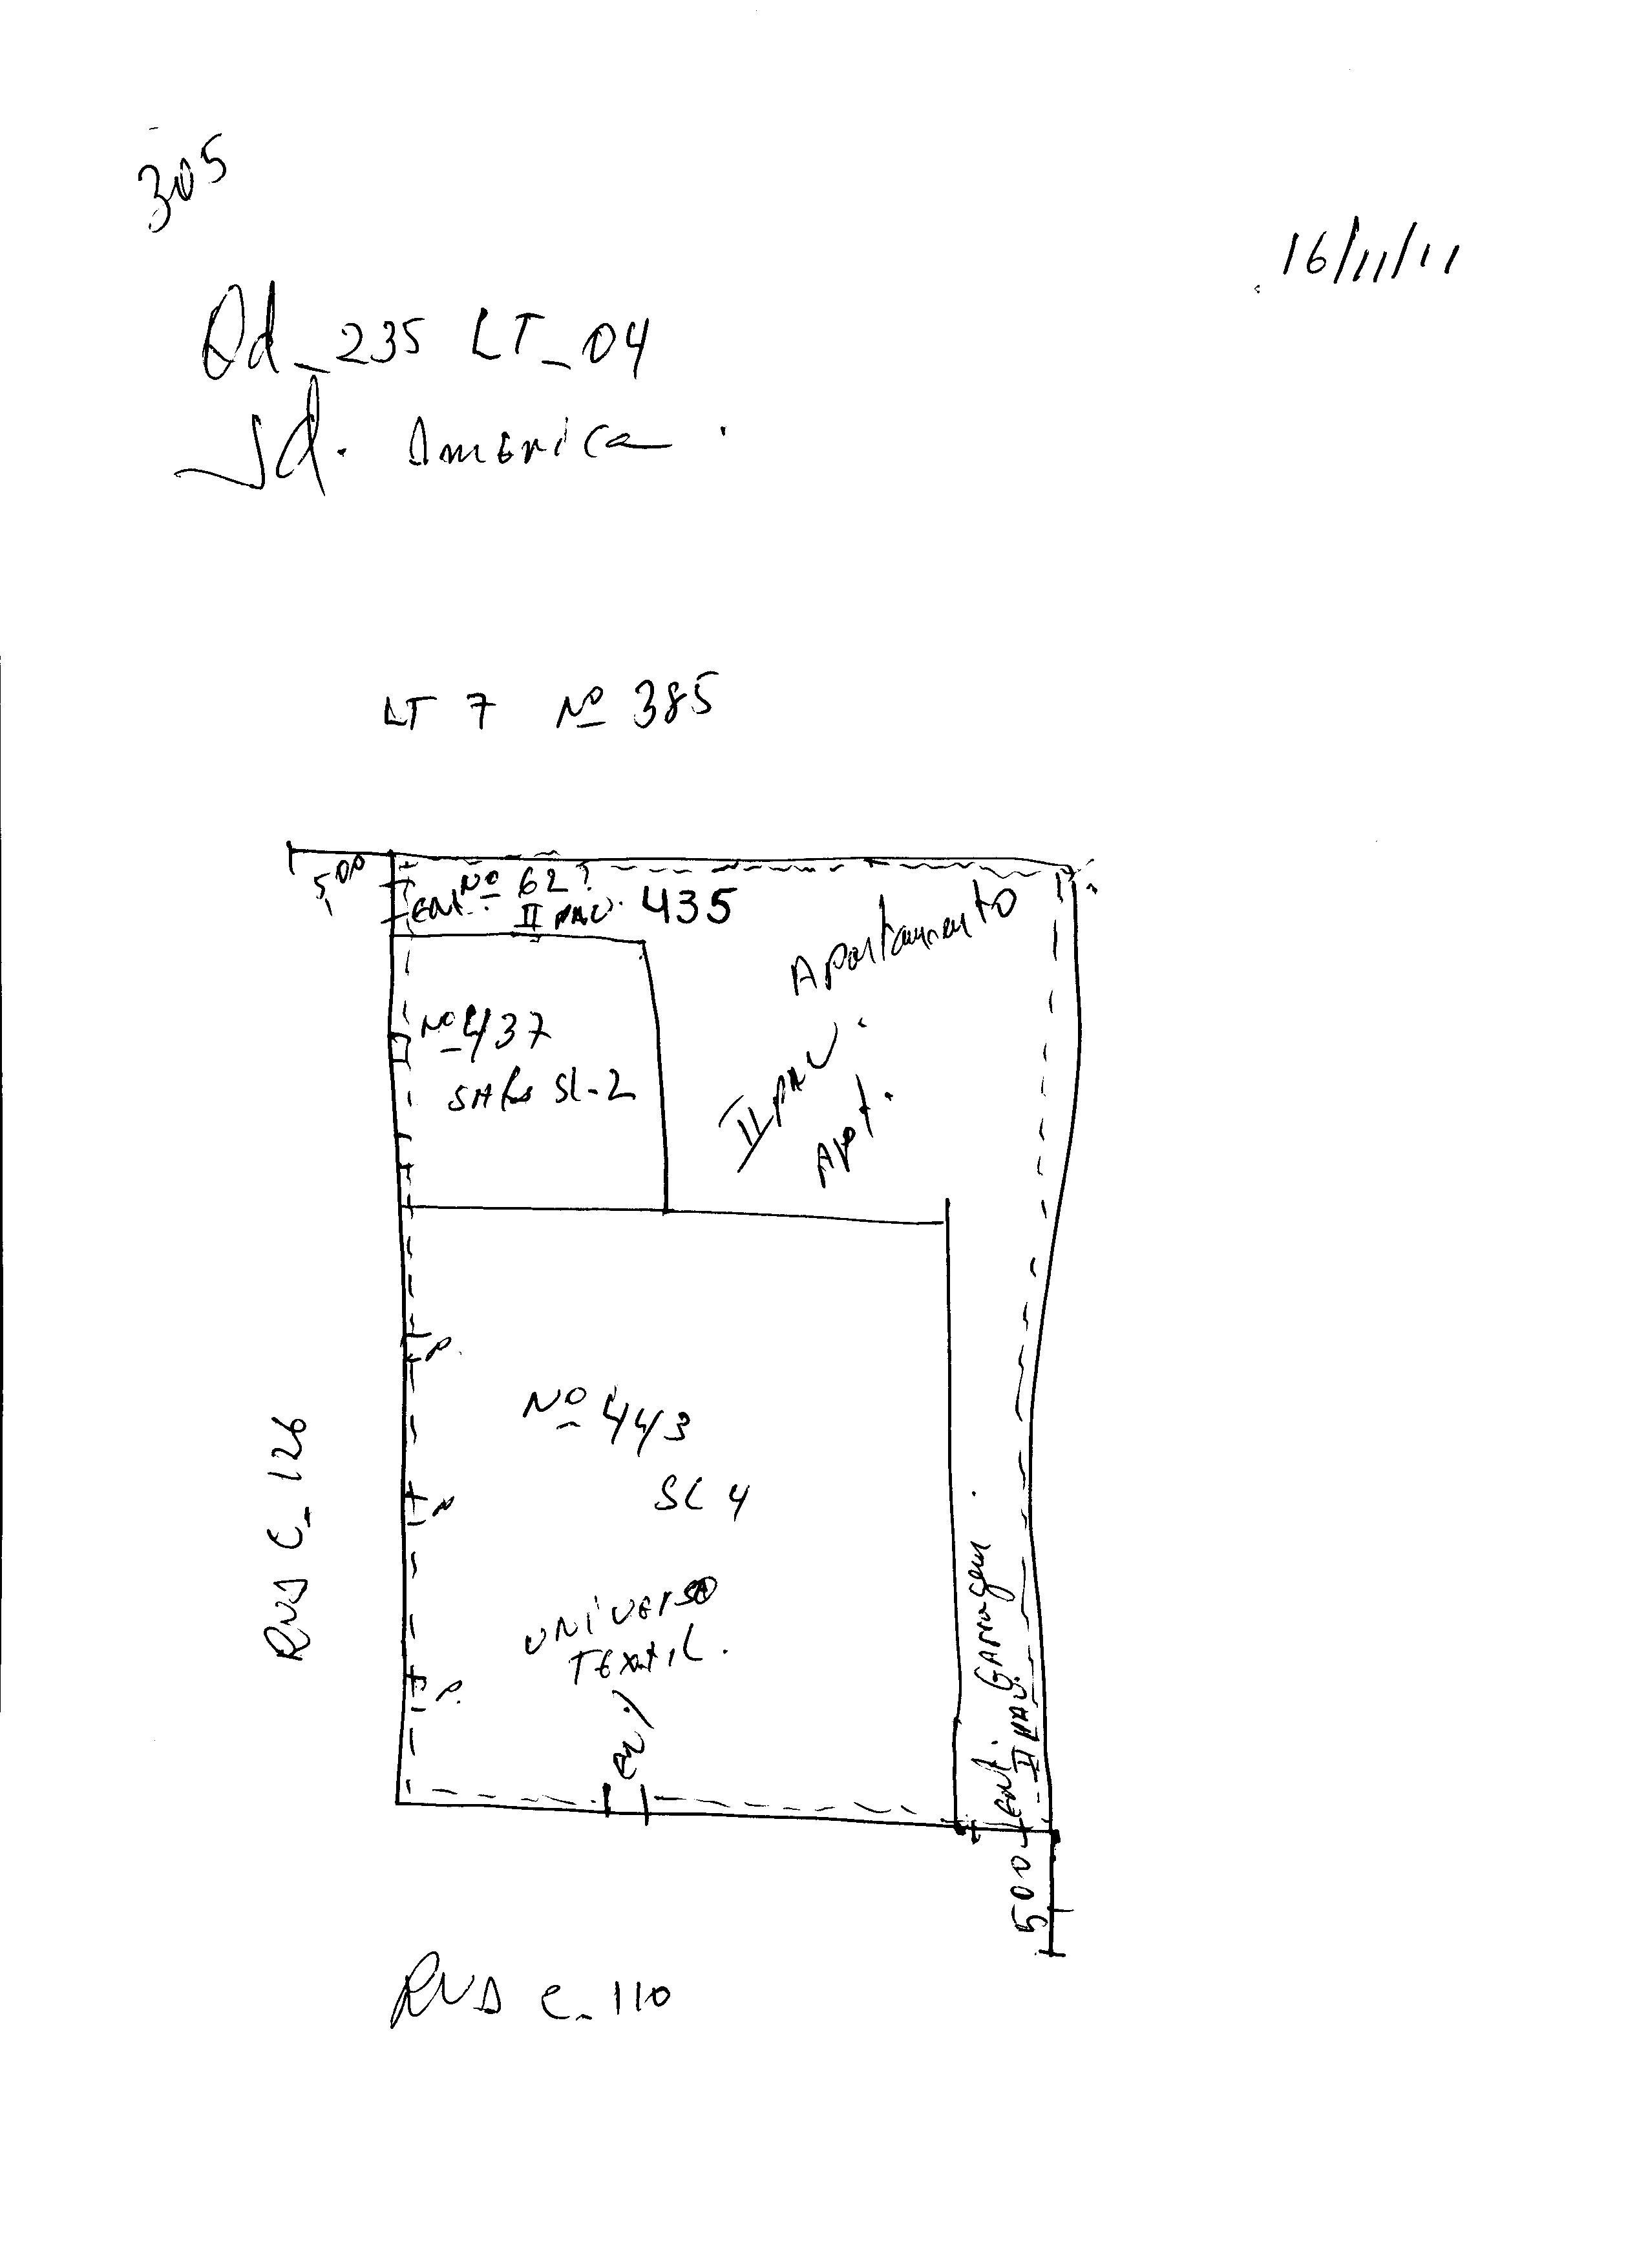 305
16/11/11
Qd_235 LT_04
Jd. America.
LT 7 Nº 385
5,00
Nº 62?
Ent. II PAV. 435
Apartamento
Nº 437
SL-2
II PAV.
Apt.
P.
Nº 443
SL 4
P.
RUA C_126
UNIVERSO
TEXTIL.
P.
Ent. GARRagem
II PAV.
500
RUA C_110